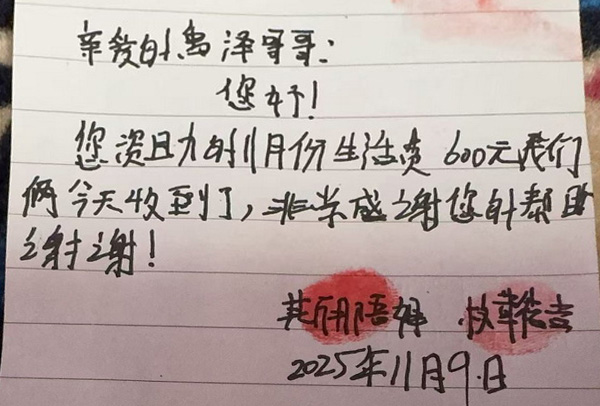 亲爱的岛泽哥哥:
您好!
您资助的11月份生活费600元我们
俩今天收到了,非常感谢您的帮助
谢谢!
其 阿 吉
2025年11月9日